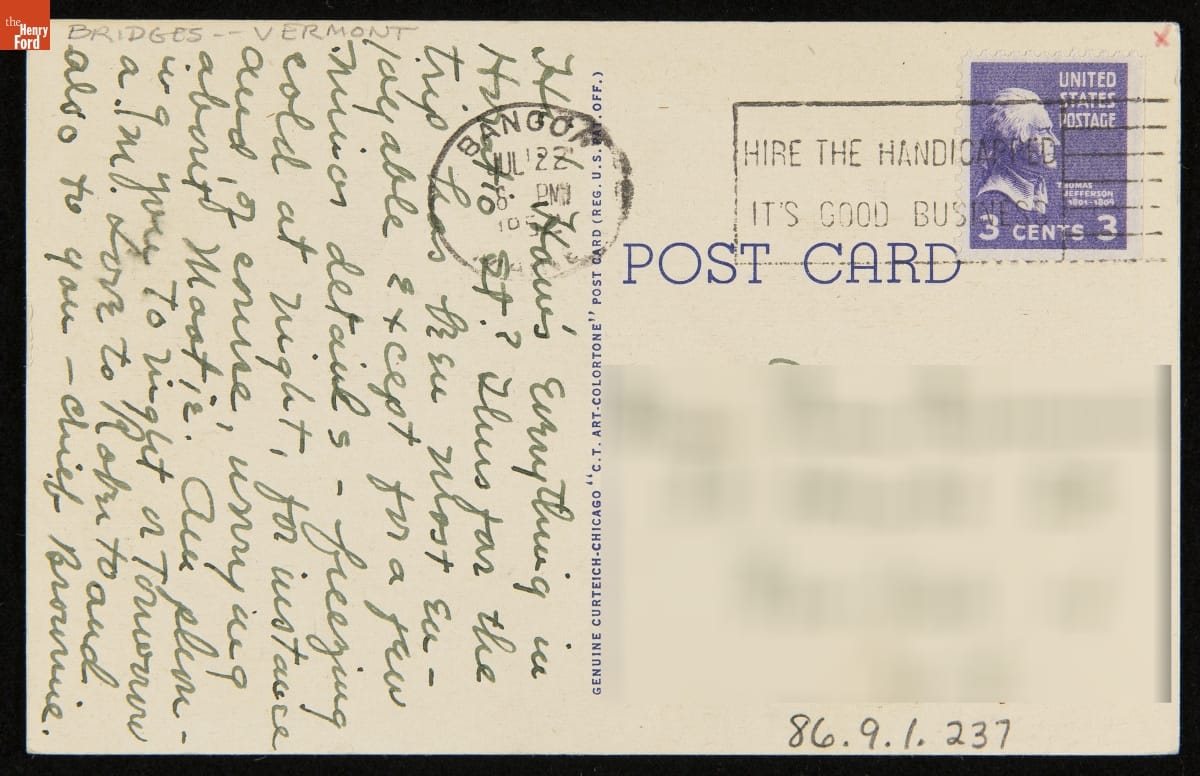 the
Henry
Ford
BRIDGES -- VERMONT
Hi! How's Everything in
St? Thus far the
trip has been most en-
joyable except for a few
minor details - freezing
cold at night, for instance
and of course, worrying
about Mostie. Am phon-
ing you tonight or tomorrow
a.m. Love to Robr to and
also to you - chief Brownie.
GENUINE CURTEICH-CHICAGO "C.T. ART-COLORTONE" POST CARD (REG. U.S. OFF.)
BANGOR
JUL 22
8 PM
HIRE THE HANDICAPPED
IT'S GOOD BUSINESS
UNITED
STATES
POSTAGE
THOMAS
JEFFERSON
1801-1809
3 CENTS 3
POST CARD
86.9.1.237